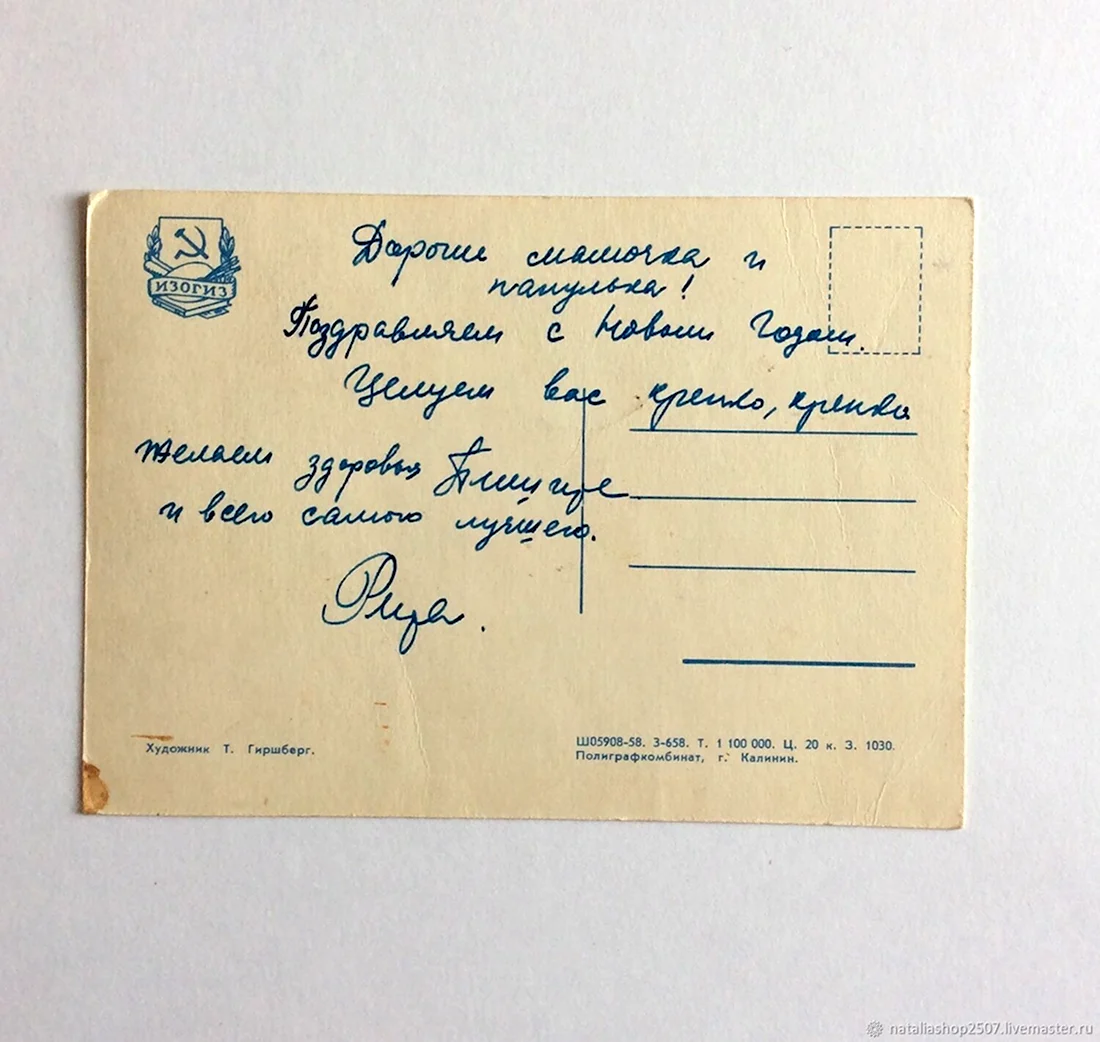 ИЗОГИЗ
Дороги мамочка и
папулька!
Поздравляем с Новым Годом.
Целуем вас крепко, крепко
Желаем здоровья
и всего самого лучшего.
Художник Т. Гиршберг.
Ш05908-58. З-658. Т. 1 100 000. Ц. 20 к. З. 1030.
Полиграфкомбинат, г. Калинин.
nataliashop2507.livemaster.ru